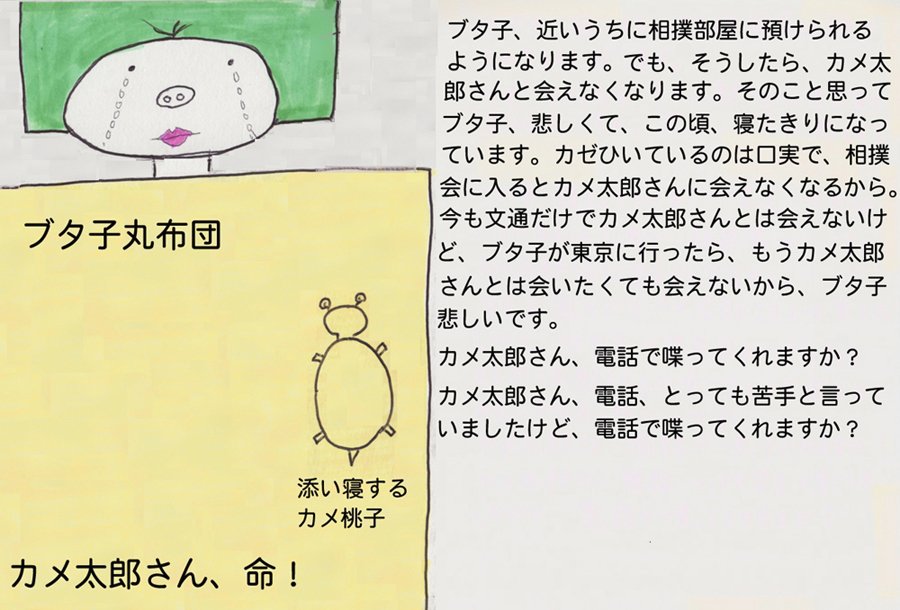 ブタ子、近いうちに相撲部屋に預けられる
ようになります。でも、そうしたら、カメ太
郎さんと会えなくなります。そのこと思って
ブタ子、悲しくて、この頃、寝たきりになっ
ています。カゼひいているのは口実で、相撲
会に入るとカメ太郎さんに会えなくなるから。
今も文通だけでカメ太郎さんとは会えないけ
ど、ブタ子が東京に行ったら、もうカメ太郎
さんとは会いたくても会えないから、ブタ子
悲しいです。
カメ太郎さん、電話で喋ってくれますか？
カメ太郎さん、電話、とっても苦手と言って
いましたけど、電話で喋ってくれますか？
ブタ子丸布団
添い寝する
カメ桃子
カメ太郎さん、命！